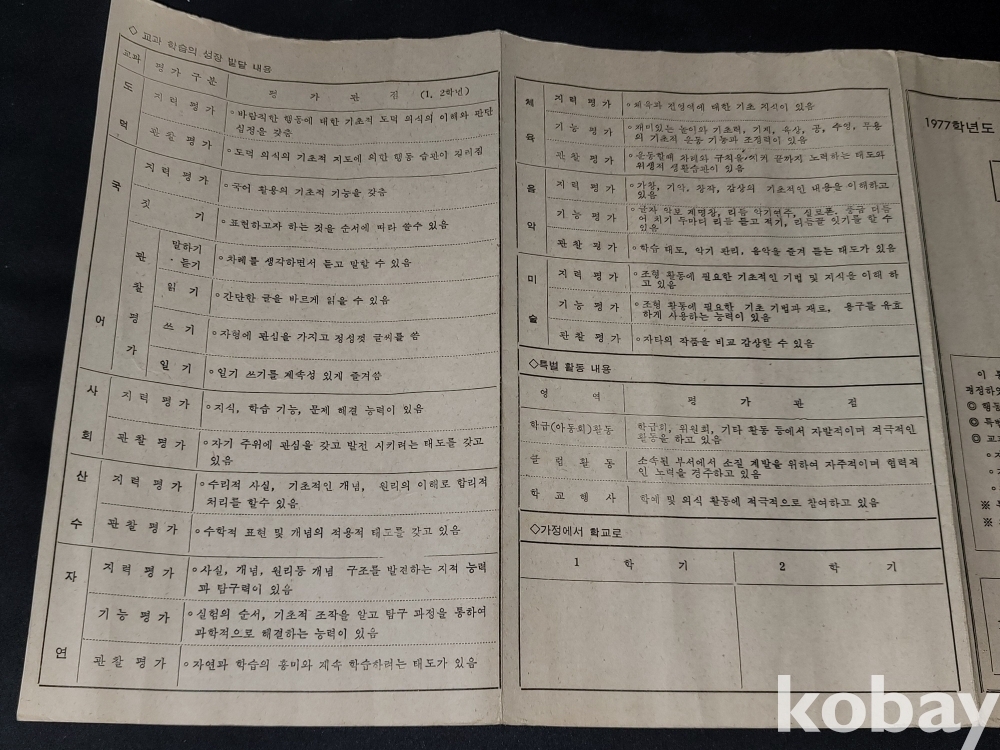 ◇ 교과 학습의 성장 발달 내용
교과 평가 구분 평 가 관 점 (1, 2학년)
도 덕
지 력 평 가 ○바람직한 행동에 대한 기초적 도덕 의식의 이해와 판단
심정을 갖춤
관 찰 평 가 ○도덕 의식의 기초적 지도에 의한 행동 습관이 길러짐
국 어
지 력 평 가 ○국어 활용의 기초적 기능을 갖춤
짓 기 ○표현하고자 하는 것을 순서에 따라 쓸수 있음
관 찰 평 가
말하기
·듣기 ○차례를 생각하면서 듣고 말할 수 있음
읽 기 ○간단한 글을 바르게 읽을 수 있음
쓰 기 ○자형에 관심을 가지고 정성껏 글씨를 씀
일 기 ○일기 쓰기를 계속성 있게 즐겨씀
사 회
지 력 평 가 ○지식, 학습 기능, 문제 해결 능력이 있음
관 찰 평 가 ○자기 주위에 관심을 갖고 발전 시키려는 태도를 갖고
있음
산 수
지 력 평 가 ○수리적 사실, 기초적인 개념, 원리의 이해로 합리적
처리를 할수 있음
관 찰 평 가 ○수학적 표현 및 개념의 적용적 태도를 갖고 있음
자 연
지 력 평 가 ○사실, 개념, 원리등 개념 구조를 발전하는 지적 능력
과 탐구력이 있음
기 능 평 가 ○실험의 순서, 기초적 조작을 알고 탐구 과정을 통하여
과학적으로 해결하는 능력이 있음
관 찰 평 가 ○자연과 학습의 흥미와 계속 학습하려는 태도가 있음
체 육
지 력 평 가 ○체육과 전영역에 대한 기초 지식이 있음
기 능 평 가 ○재미있는 놀이와 기초력, 기계, 육상, 공, 수영, 무용
의 기초적 운동 기능과 조정력이 있음
관 찰 평 가 ○운동할때 차례와 규칙을 지켜 끝까지 노력하는 태도와
위생적 생활습관이 있음
음 악
지 력 평 가 ○가창, 기악, 창작, 감상의 기초적인 내용을 이해하고
있음
기 능 평 가 ○글자 악보 계명창, 리듬 악기연주, 실로폰.
어 외기 두마디 리듬 듣고 적기, 리듬꼴 잇기를 할 수
있음
관 찰 평 가 ○학습 태도, 악기 관리, 음악을 즐겨 듣는 태도가 있음
미 술
지 력 평 가 ○조형 활동에 필요한 기초적인 기법 및 지식을 이해 하
고 있음
기 능 평 가 ○조형 활동에 필요한 기초 기법과 재료, 용구를 유효
하게 사용하는 능력이 있음
관 찰 평 가 ○자타의 작품을 비교 감상할 수 있음
◇특별 활동 내용
영 역 평 가 관 점
학급(아동회)활동 학급회, 위원회, 기타 활동 등에서 자발적이며 적극적인
활동을 하고 있음
클 럽 활 동 소속된 부서에서 소질 계발을 위하여 자주적이며 협력적
인 노력을 경주하고 있음
학 교 행 사 학예 및 의식 활동에 적극적으로 참여하고 있음
◇가정에서 학교로
1 학 기 2 학 기
1977학년도
이
평정하였
◎ 행동
◎ 특별
◎ 교
kobay